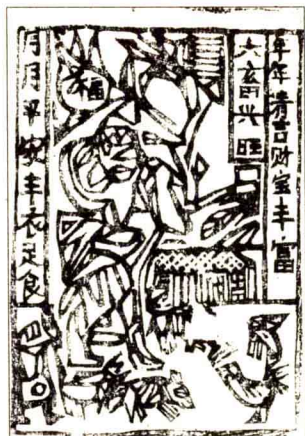 年年清吉财宝丰富
六畜兴旺
福
月月平安丰衣足食
四